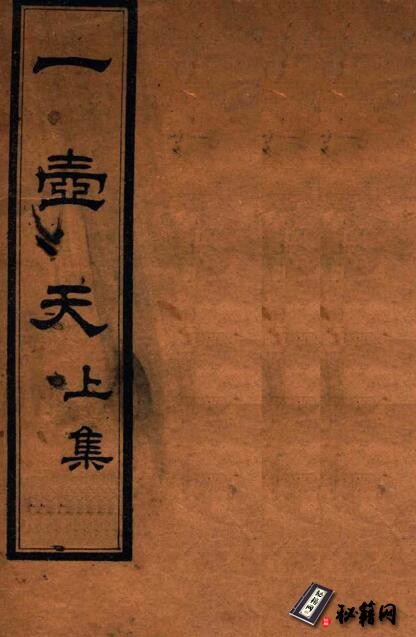 一壺天上集
秘籍网